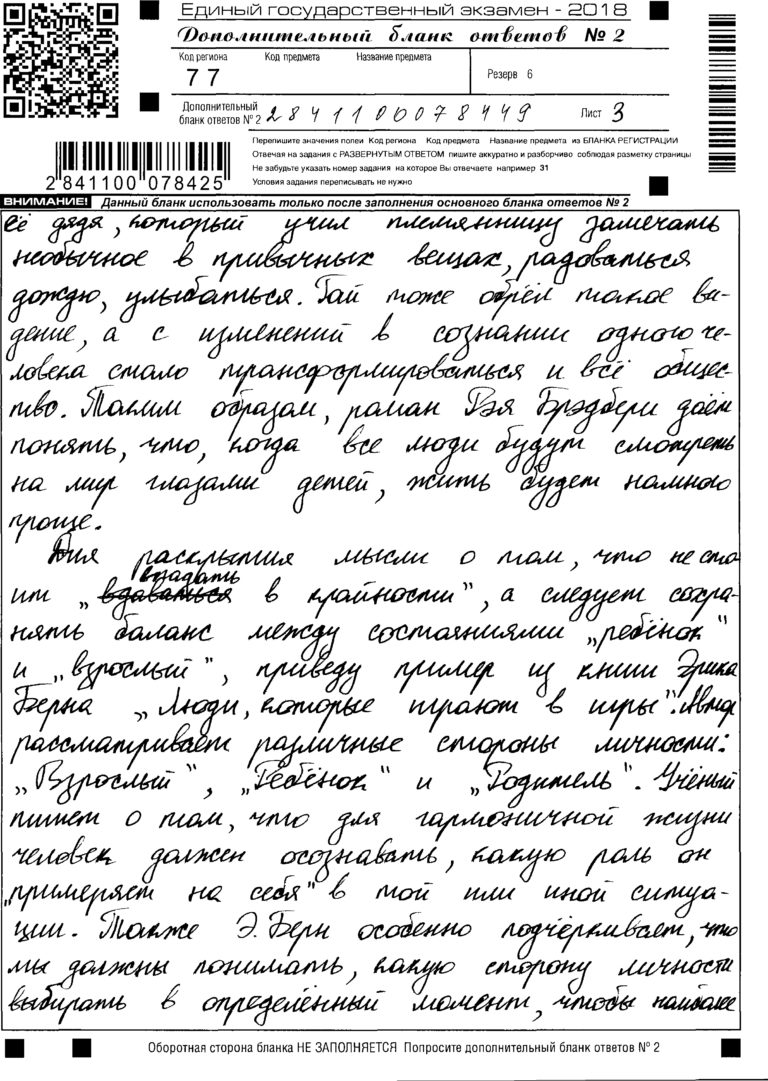 Единый государственный экзамен - 2018
Дополнительный бланк ответов № 2
Код региона Код предмета Название предмета
77
Резерв 6
Дополнительный бланк ответов № 2 2841100078449 Лист 3
Перепишите значения полей Код региона Код предмета Название предмета из БЛАНКА РЕГИСТРАЦИИ
Отвечая на задания с РАЗВЕРНУТЫМ ОТВЕТОМ пишите аккуратно и разборчиво соблюдая разметку страницы
Не забудьте указать номер задания на которое Вы отвечаете например 31
Условия задания переписывать не нужно
2 841100 078425
ВНИМАНИЕ! Данный бланк использовать только после заполнения основного бланка ответов № 2
её дядя, который учил племянницу замечать
необычное в привычных вещах, радоваться
дождю, улыбаться. Гай тоже обрёл такое ви-
дение, а с изменений в сознании одного че-
ловека стало трансформироваться и всё общес-
тво. Таким образом, роман Рэя Брэдбери даёт
понять, что, когда все люди будут смотреть
на мир глазами детей, жить будет намного
проще.
Для раскрытия мысли о том, что не сто-
впадать
ит „вдаваться в крайности", а следует сохра-
нять баланс между состояниями „ребёнок"
и „взрослый", приведу пример из книги Эрика
Берна „Люди, которые играют в игры". Автор
рассматривает различные стороны личности:
„Взрослый", „Ребёнок" и „Родитель". Учёный
пишет о том, что для гармоничной жизни
человек должен осознавать, какую роль он
„примеряет на себя" в той или иной ситуа-
ции. Также Э. Берн особенно подчёркивает, что
мы должны понимать, какую сторону личности
выбирать в определённый момент, чтобы наиболее
Оборотная сторона бланка НЕ ЗАПОЛНЯЕТСЯ Попросите дополнительный бланк ответов № 2